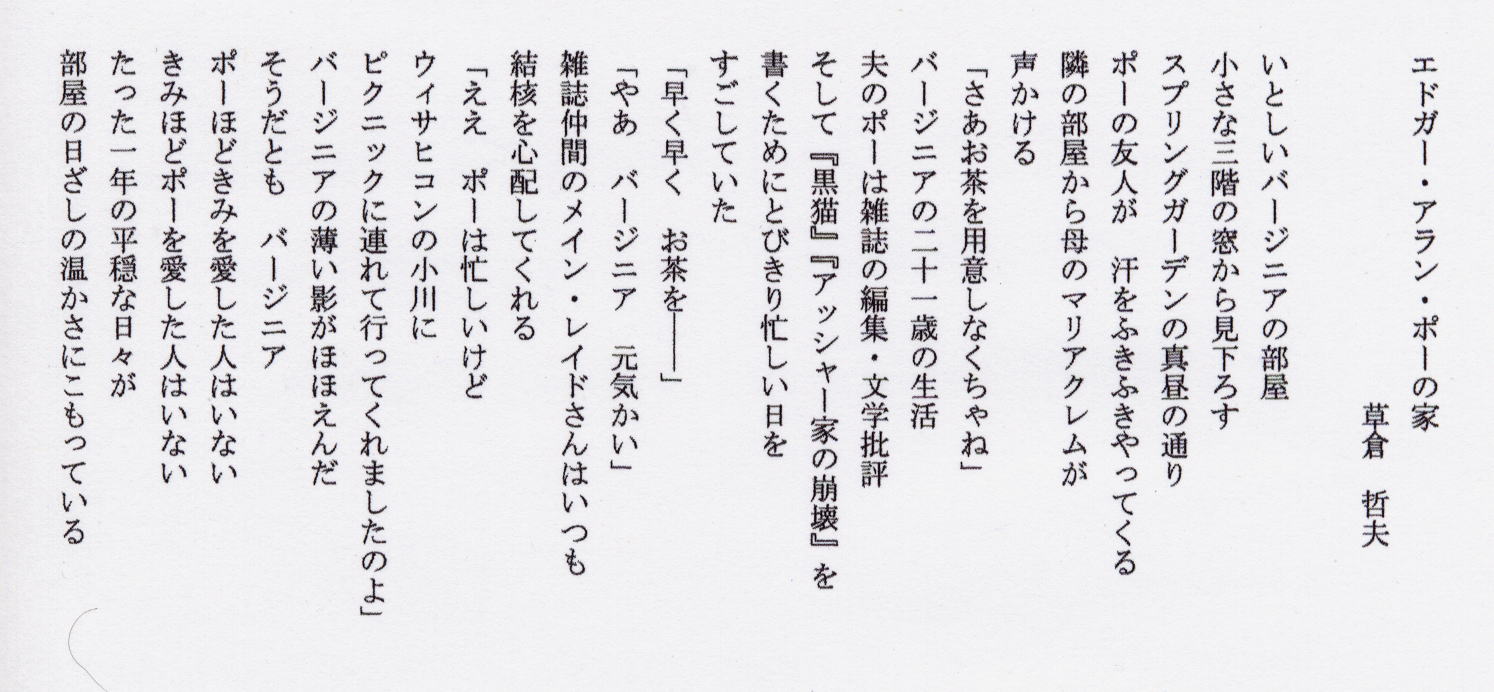 エドガー・アラン・ポーの家
草倉　哲夫
いとしいバージニアの部屋
小さな三階の窓から見下ろす
スプリングガーデンの真昼の通り
ポーの友人が　汗をふきふきやってくる
隣の部屋から母のマリアクレムが
声かける
「さあお茶を用意しなくちゃね」
バージニアの二十一歳の生活
夫のポーは雑誌の編集・文学批評
そして『黒猫』『アッシャー家の崩壊』を
書くためにとびきり忙しい日を
すごしていた
「早く早く　お茶を――」
「やあ　バージニア　元気かい」
雑誌仲間のメイン・レイドさんはいつも
結核を心配してくれる
「ええ　ポーは忙しいけど
ウィサヒコンの小川に
ピクニックに連れて行ってくれましたのよ」
バージニアの薄い影がほほえんだ
そうだとも　バージニア
ポーほどきみを愛した人はいない
きみほどポーを愛した人はいない
たった一年の平穏な日々が
部屋の日ざしの温かさにこもっている